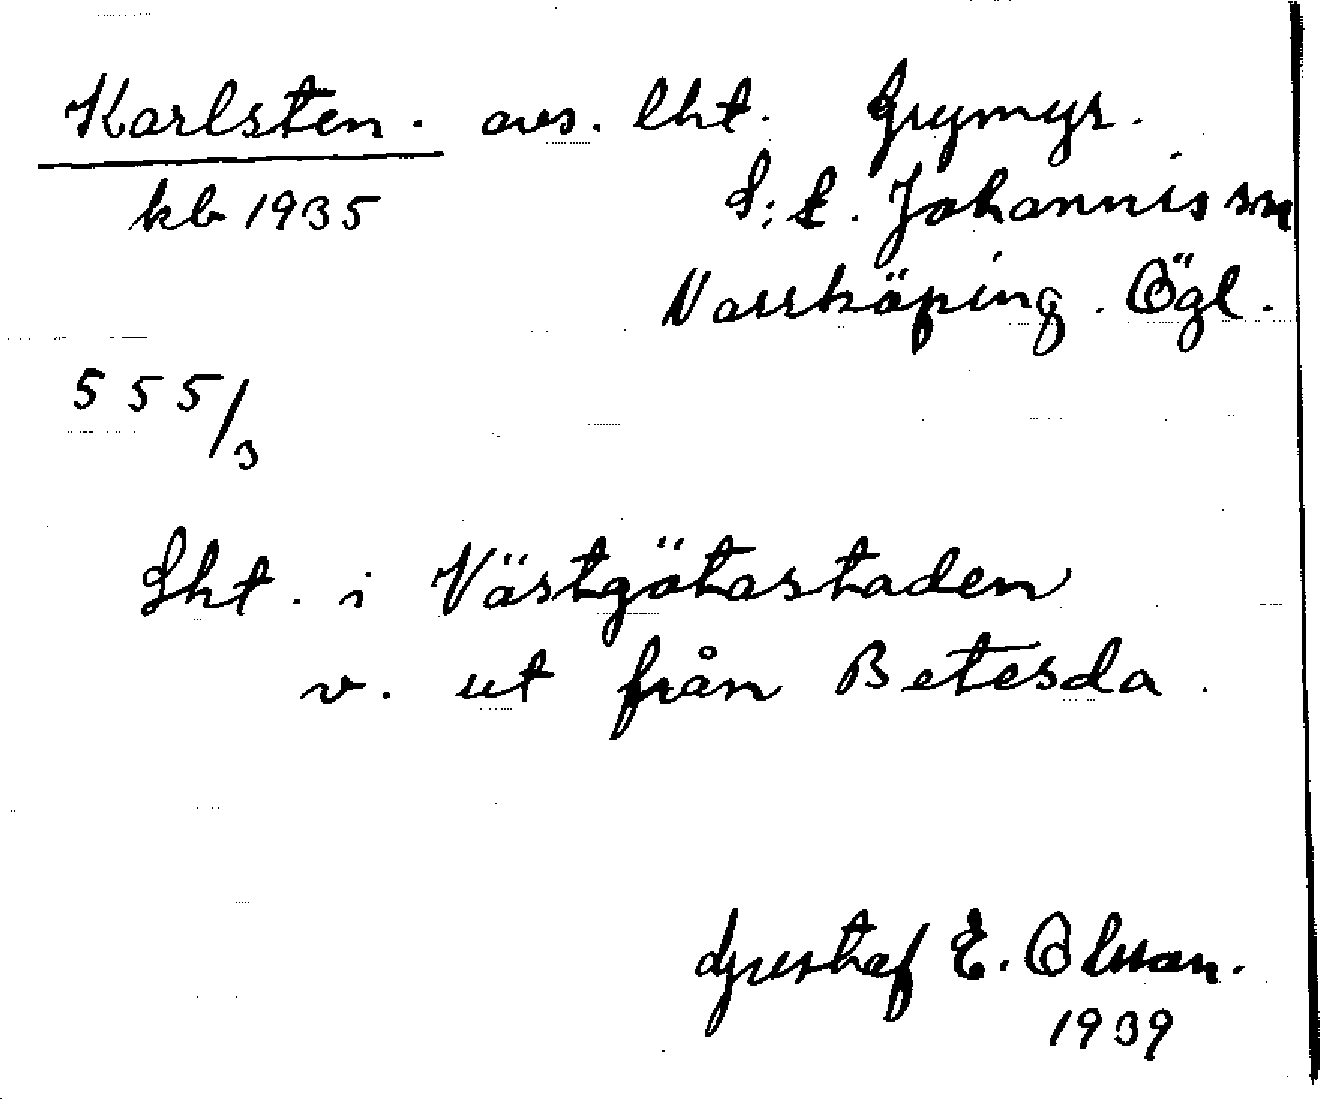 Karlsten. avs. lht. Grymyr.
kb 1935 S:t. Johannis sn
Norrköping. Ögl.
555/3
Lht. i Västgötastaden
v. ut från Betesda.
Gustaf E. Olsson.
1939